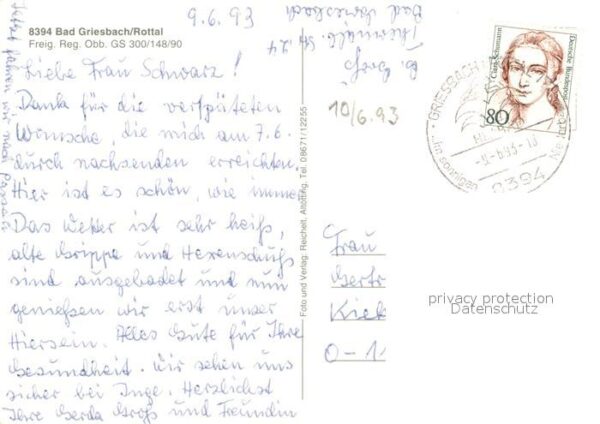 9.6.93
8394 Bad Griesbach/Rottal
Freig. Reg. Obb. GS 300/148/90
Liebe Frau Schwarz!
Dank für die verspäteten
Wünsche, die mich am 7.6.
durch nachsenden erreichten.
Hier ist es schön, wie immer
Das Wetter ist sehr heiß,
alte Grippe und Hexenschuß
sind ausgebadet und nun
genießen wir erst unser
Hiersein. Alles Gute für Ihre
Gesundheit. Wir sehen uns
sicher bei Inge. Herzlichst
Ihre Gerda Groß und Freundin
Jetzt fahren wir nach Passau
Foto und Verlag: Reichelt, Altötting, Tel. 08671/12255
G. Groß
Thermalb. Str. 24
Bad Griesbach
10/6.93
Clara Schumann
Deutsche Bundespost
80
GRIESBACH
Im sonnigen
-93-10
8394
Frau
Gertr
Kiek
O-1
privacy protection
Datenschutz